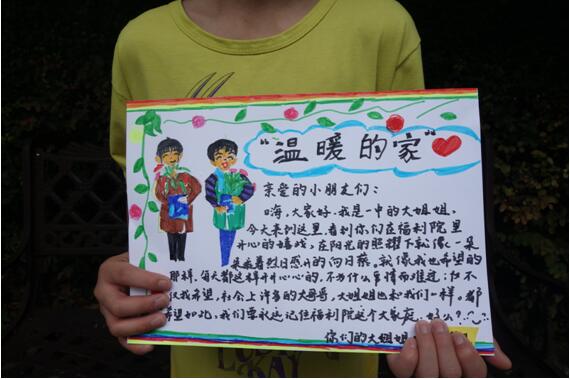 “温暖的家”
亲爱的小朋友们：
嗨，大家好，我是一中的大姐姐，
今天来到这里，看到你们在福利院里
开心的嬉戏，在阳光的照耀下就像一朵
朵散着烈日盛开的向日葵。就像我也希望的
那样，每天都这样开开心心的，不为什么事情而难过；
仅我希望，社会上许多的大哥哥，大姐姐也和我们一样。都
希望如此，我们要永远记住福利院这个大家庭，好么？
你们的大姐姐
KAY